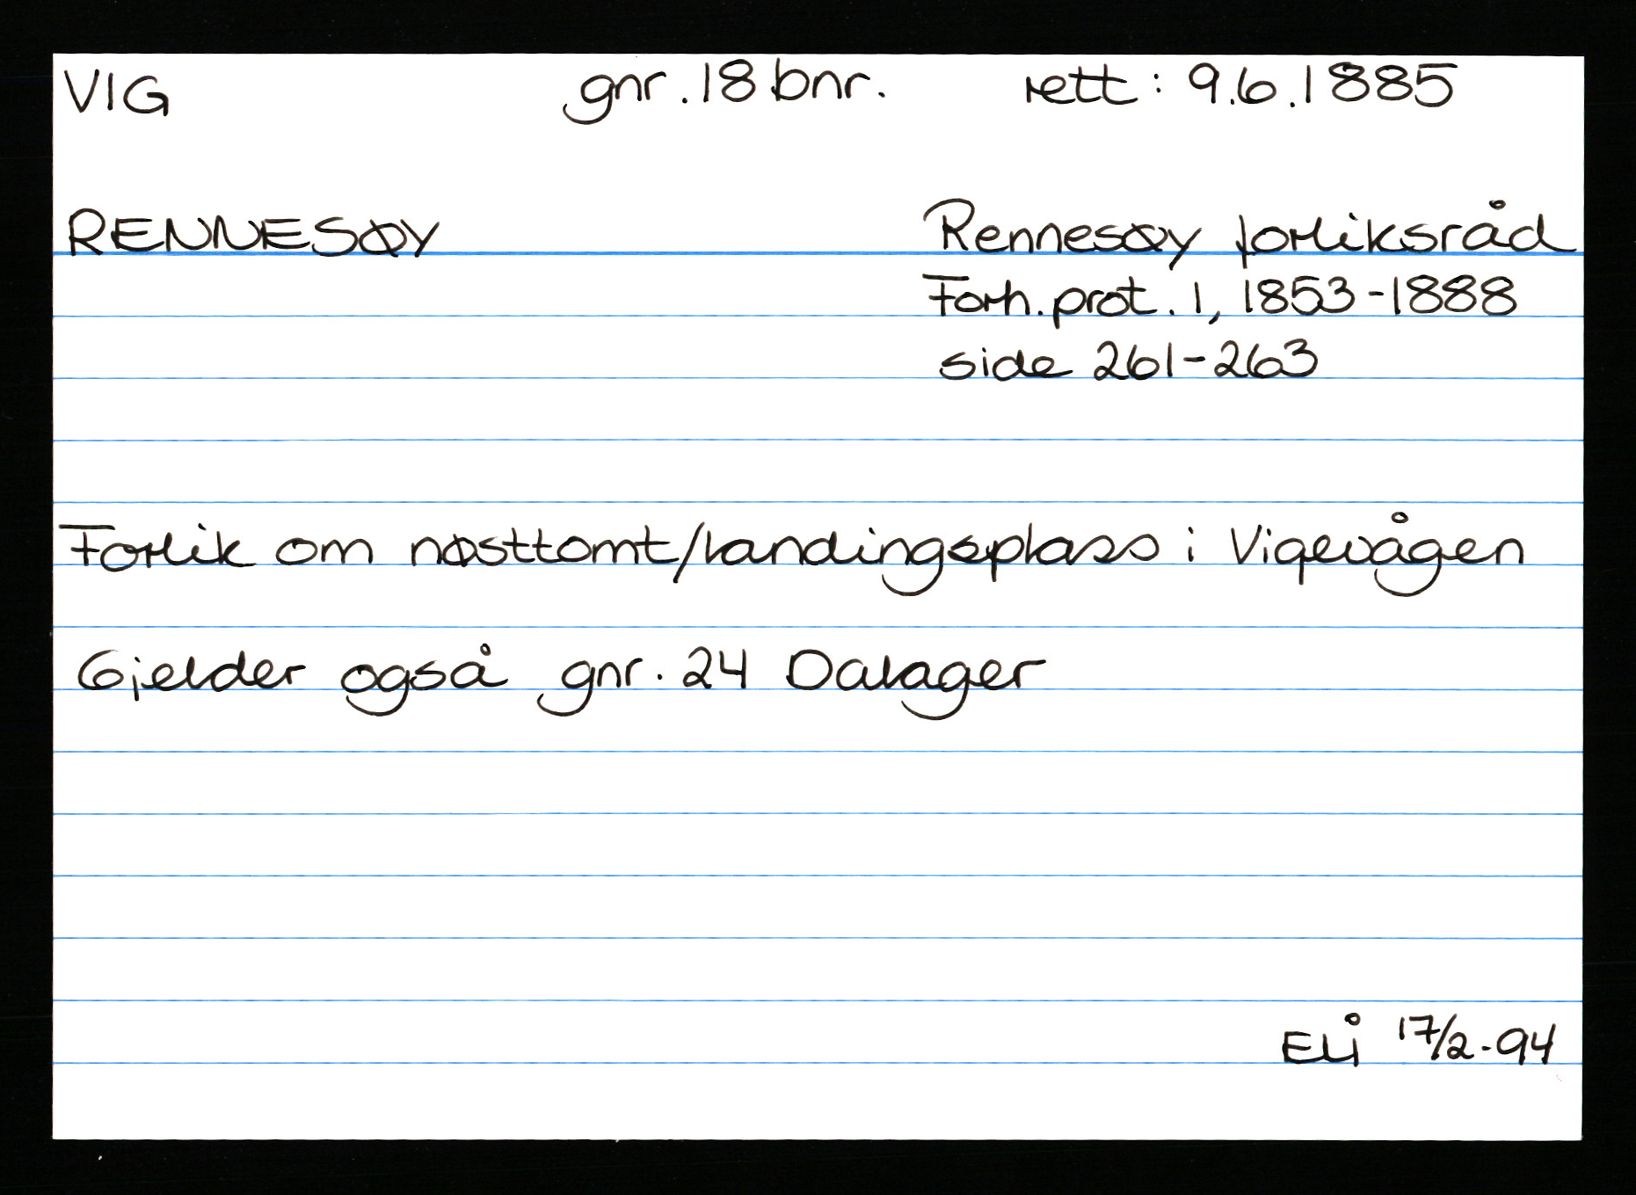 VIG gnr. 18 bnr. rett: 9.6.1885
RENNESØY Rennesøy forliksråd
Forh. prot. 1, 1853-1888
side 261-263
Forlik om nøsttomt/landingsplass i Vigevågen
Gjelder også gnr. 24 Dalager
Eli 17/2-94